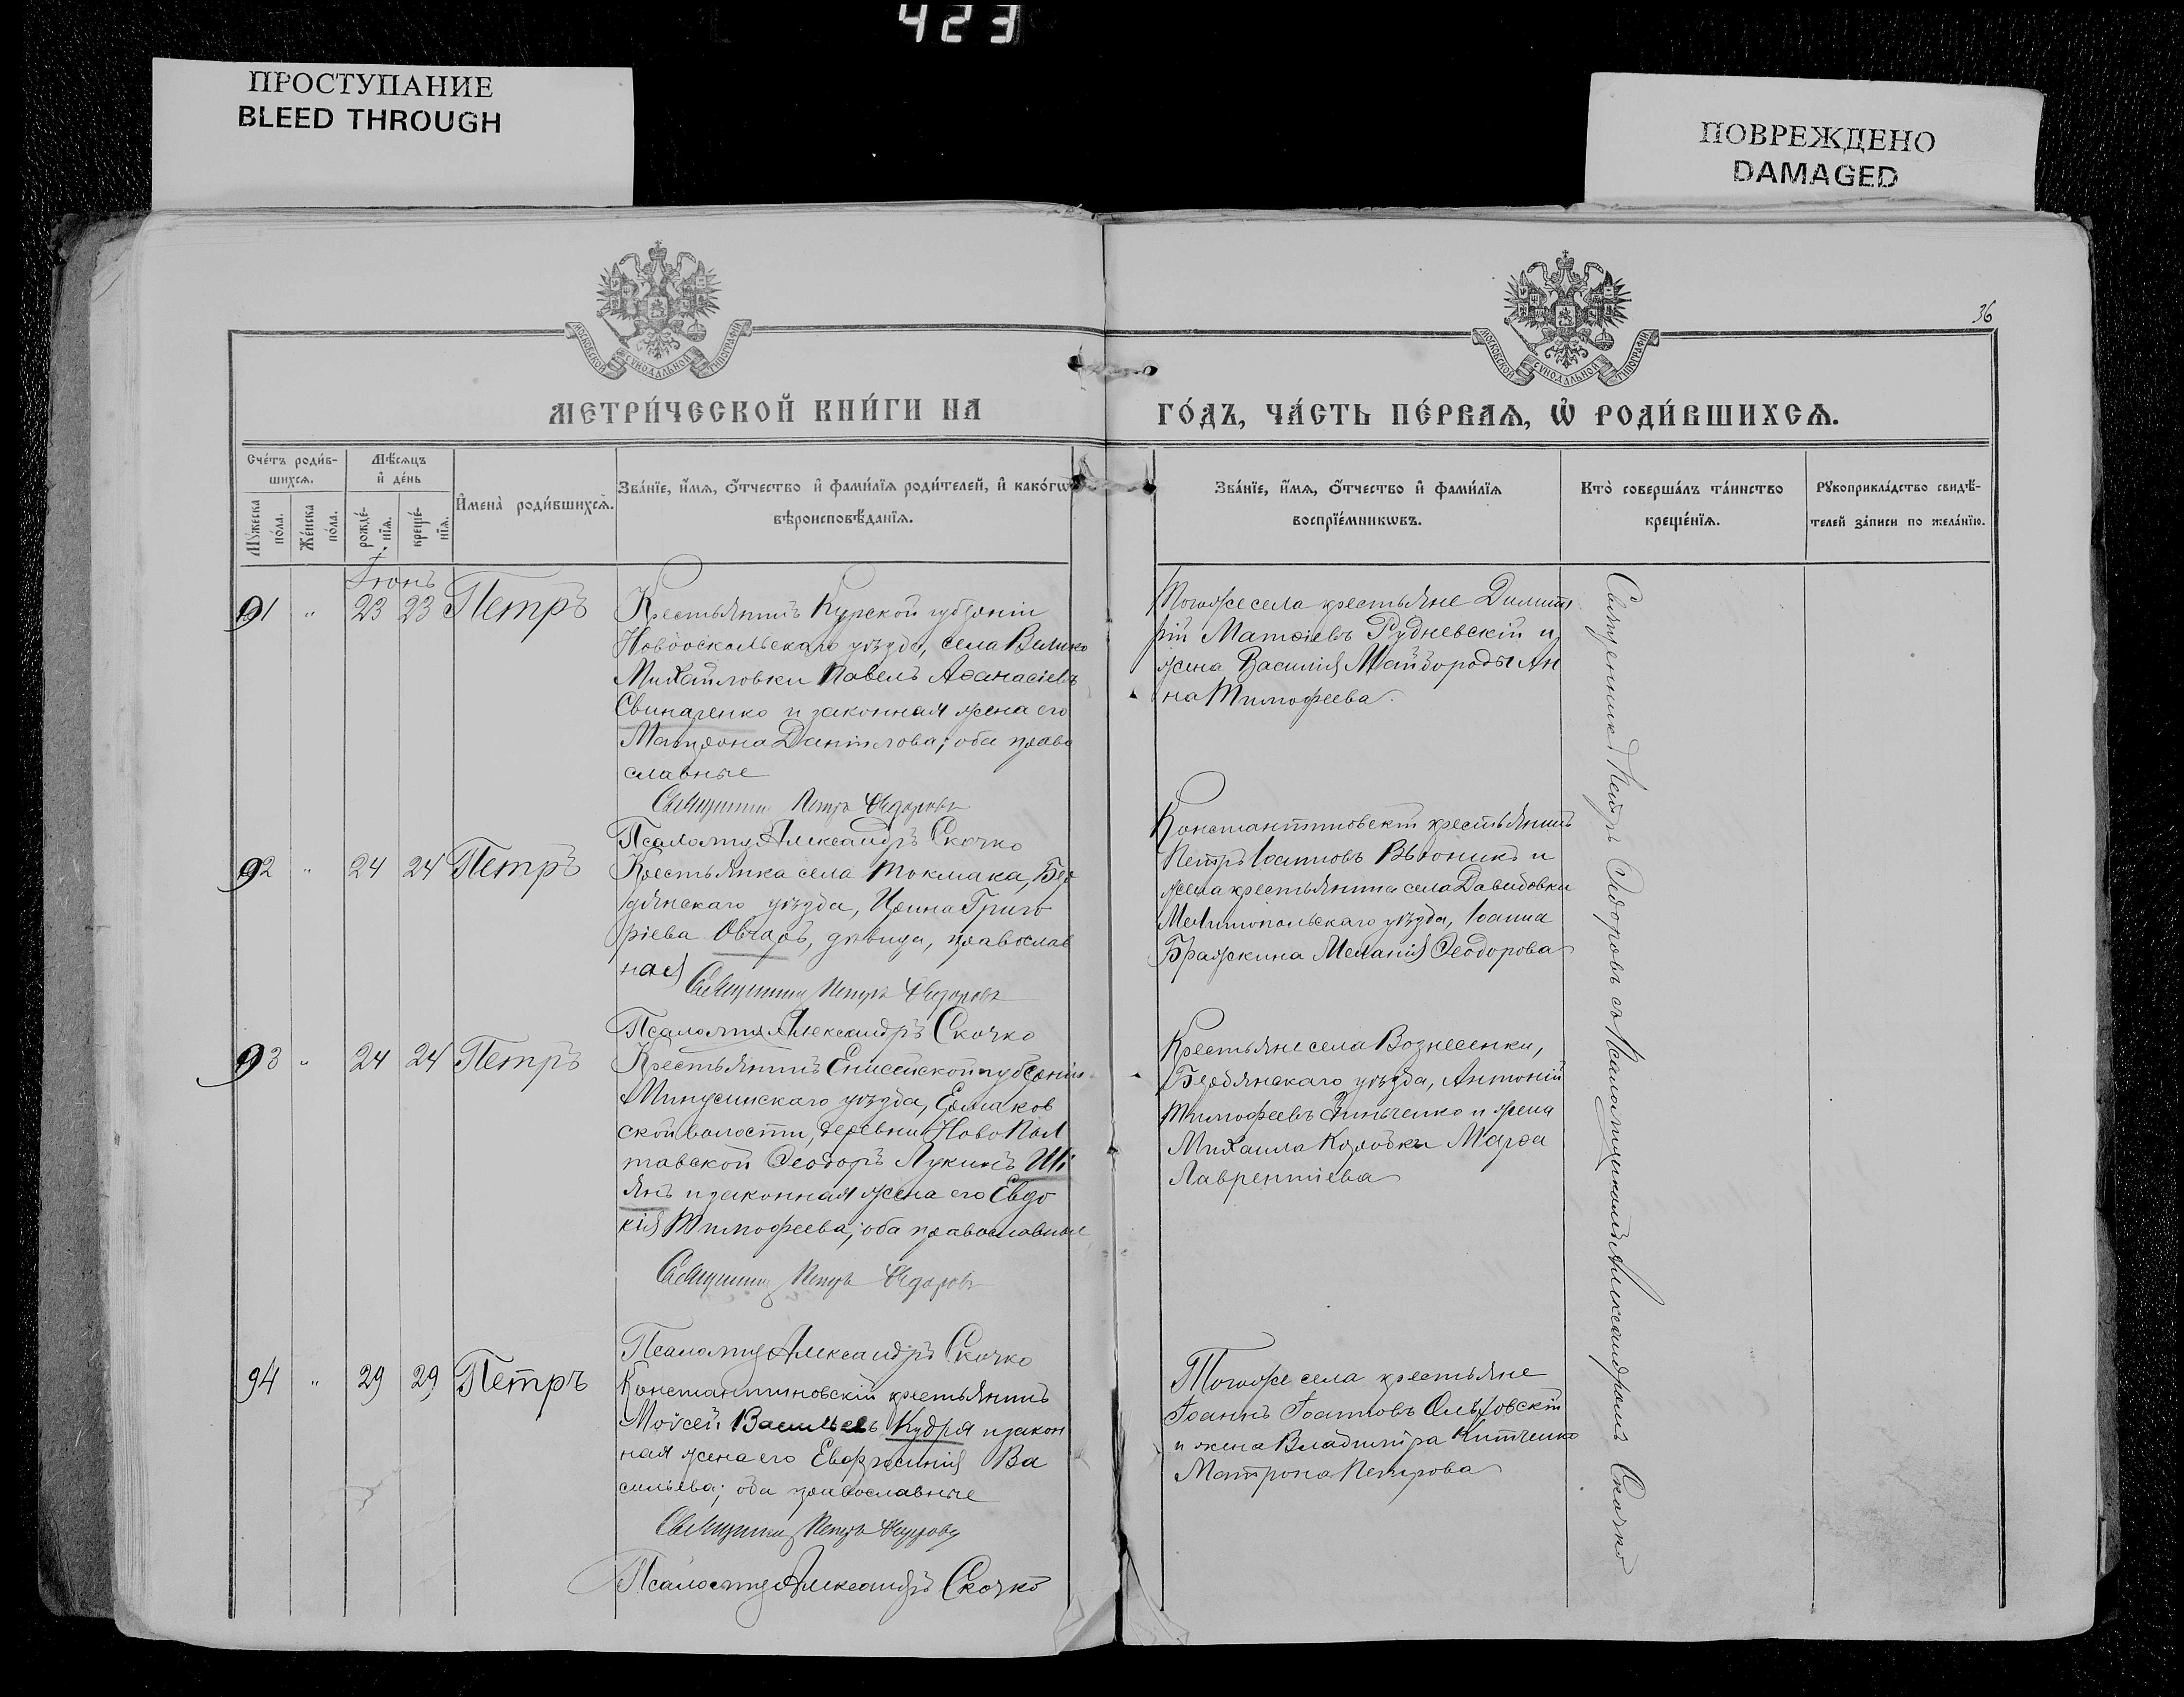 423
ПРОСТУПАНИЕ
BLEED THROUGH
ПОВРЕЖДЕНО
DAMAGED
МОСКОВСКОЙ СУНОДАЛЬНОЙ ТИПОГРАФІИ
МОСКОВСКОЙ СУНОДАЛЬНОЙ ТИПОГРАФІИ
36
МЕТРИ́ЧЕСКОЙ КНИ́ГИ НА
ГО́ДЪ, ЧА́СТЬ ПЕ́РВАѦ, Ѽ РОДИ́ВШИХСѦ.
Сче́тъ роди́в-
шихсѧ.
Мꙋ́жеска
по́ла.
Же́нска
по́ла.
Мѣ́сѧцъ
и҆ де́нь
рожде́-
нїѧ.
креще́-
нїѧ.
И҆мена̀ роди́вшихсѧ.
Зва́нїе, и҆́мѧ, ѻ҆́тчество и҆ фами́лїѧ роди́телей, и҆ како́гѡ
вѣроисповѣ́данїѧ.
Зва́нїе, и҆́мѧ, ѻ҆́тчество и҆ фами́лїѧ
воспрїе́мникѡвъ.
Кто̀ соверша́лъ та́инство
креще́нїѧ.
Рꙋкоприкла́дство свидѣ́-
телей за́писи по жела́нїю.
Іюнь
91 " 23 23 Петръ
Крестьянинъ Курской губерніи
Новооскольскаго уѣзда, села Велико
Михайловки Павелъ Аѳанасіевъ
Свинаренко и законная жена его
Матрона Даніилова; оба право
славные
Священникъ Петръ Ѳедоровъ
Псаломщ Александръ Скочко
Тогоже села крестьяне Димит
рій Матѳіевъ Рудневскій и
жена Василія Майбороды Ан
на Тимофеева
92 " 24 24 Петръ
Крестьянка села Токмака, Бер
дянскаго уѣзда, Ирина Григо
ріева Овчаръ, дѣвица, православ
ная
Священникъ Петръ Ѳедоровъ
Псаломщ Александръ Скочко
Константиновскій крестьянинъ
Петръ Іоанновъ Вьюникъ и
жена крестьянина села Давидовки
Мелитопольскаго уѣзда, Іоанна
Бражкина Меланія Ѳеодорова
93 " 24 24 Петръ
Крестьянинъ Енисейской губерніи
Минусинскаго уѣзда, Ермаков
ской волости, деревни Ново Пол
тавской Ѳеодоръ Лукинъ Ші
янъ и законная жена его Евдо
кія Тимофеева; оба православные
Священникъ Петръ Ѳедоровъ
Псаломщ Александръ Скочко
Крестьяне села Вознесенки,
Бердянскаго уѣзда, Антоній
Тимофеевъ Зинченко и жена
Михаила Коробки Марѳа
Лаврентіева
94 " 29 29 Петръ
Константиновскій крестьянинъ
Моисей Васильевъ Кудря и закон
ная жена его Евфросинія Ва
сильева; оба православные
Священникъ Петръ Ѳедоровъ
Псаломщ Александръ Скочко
Тогоже села крестьяне
Іоаннъ Іоанновъ Ольховскій
и жена Владиміра Китченко
Матрона Петрова
Священникъ Петръ Ѳеодоровъ съ Псаломщикомъ Александромъ Скочко